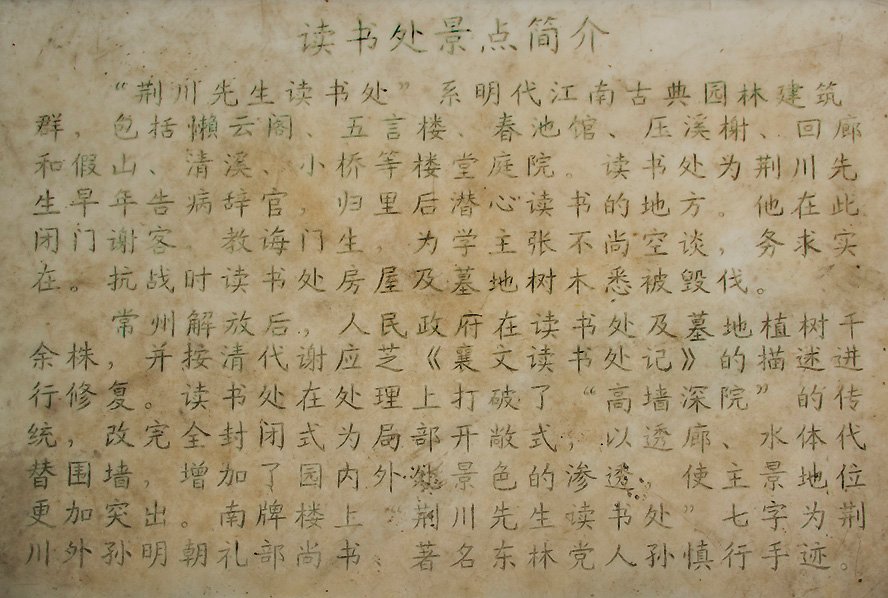 读书处景点简介
“荆川先生读书处”系明代江南古典园林建筑
群，包括懒云阁、五言楼、春池馆、压溪榭、回廊
和假山、清溪、小桥等楼堂庭院。读书处为荆川先
生早年告病辞官，归里后潜心读书的地方。他在此
闭门谢客 教诲门生，为学主张不尚空谈，务求实
在。抗战时读书处房屋及墓地树木悉被毁伐。
常州解放后，人民政府在读书处及墓地植树千
余株，并按清代谢应芝《襄文读书处记》的描述进
行修复。读书处在处理上打破了“高墙深院”的传
统，改完全封闭式为局部开敞式，以透廊、水体代
替围墙，增加了园内外 景色的渗透。使主景地位
更加突出。南牌楼上“荆川先生读书处”七字为荆
川外孙明朝礼部尚书、著名东林党人孙慎行手迹。